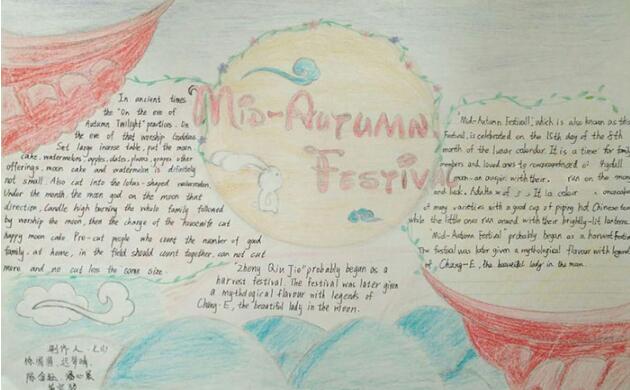 MID-AUTUMN
FESTIVAL
In ancient times
the "On the eve of
Autumn Twilight" practices. On
the eve of that worship Goddess.
Set large incense table, put the moon
cake, watermelons, apples, dates, plums, grapes other
offerings, moon cake and watermelon is definitely
not small. Also cut into the lotus-shaped watermelon.
Under the month the moon god on the moon that
direction, Candle high burning the whole family followed
by worship the moon, then the charge of the housewife cut
happy moon cake Pre-cut people who count the number of good
family, at home, in the field should count together, can not cut
more and no cut less the same size
"Zhong Qiu Jie" probably began as a
harvest festival. The festival was later given
a mythological flavour with legends of
Chang-E, the beautiful lady in the moon.
"Mid-Autumn Festival", which is also known as the
Festival, is celebrated on the 15th day of the 8th
month of the lunar calendar. It is a time for family
members and loved ones to
moon-an with their. on the moon
and luck. Adults
many varieties with a good cup of piping hot Chinese tea
while the little ones run around with their brightly-lit lanterns
"Mid-Autumn Festival" probably began as a harvest festival
The festival was later given a mythological flavour with legends
of Chang-E, the beautiful lady in the moon
制作人